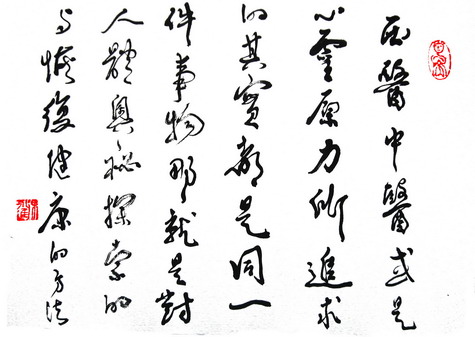 西醫中醫或是
心靈原力所追求
的其實都是同一
件事物那就是對
人體奧秘探索的
與恢復健康的方法